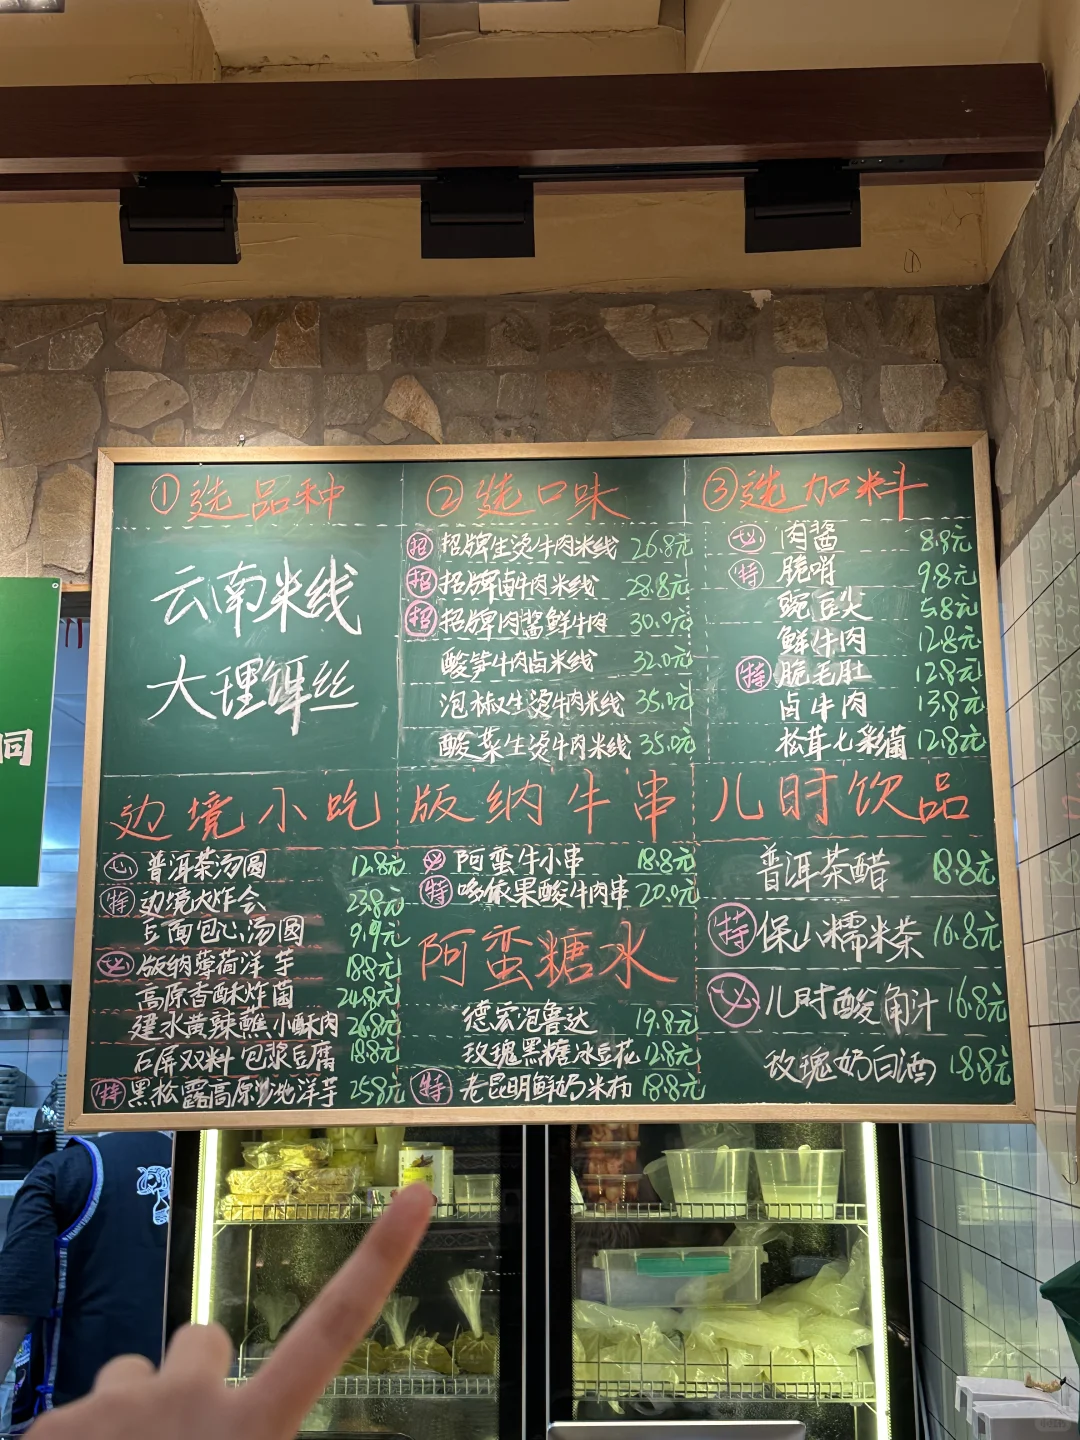 ①选品种
云南米线
大理饵丝
②选口味
招 招牌生烫牛肉米线 26.8元
招 招牌卤牛肉米线 28.8元
招 招牌肉酱鲜牛肉 30.0元
酸笋牛肉卤米线 32.0元
泡椒生烫牛肉米线 35.0元
酸菜生烫牛肉米线 35.0元
③选加料
必 肉酱 8.8元
特 脆哨 9.8元
豌豆尖 5.8元
鲜牛肉 12.8元
特 脆毛肚 12.8元
卤牛肉 13.8元
松茸七彩菌 12.8元
边境小吃
心 普洱茶汤圆 12.8元
特 边境大炸会 23.8元
豆面包心汤圆 9.9元
必 版纳薄荷洋芋 18.8元
高原香酥炸菌 24.8元
建水黄辣蘸小酥肉 26.8元
石屏双料包浆豆腐 18.8元
特 黑松露高原沙地洋芋 25.8元
版纳牛串
必 阿蛮牛小串 18.8元
特 哆依果酸牛肉串 20.0元
阿蛮糖水
德宏泡鲁达 19.8元
玫瑰黑糖冰豆花 12.8元
特 老昆明鲜奶米布 18.8元
儿时饮品
普洱茶醋 18.8元
特 保山糯米茶 16.8元
必 儿时酸角汁 16.8元
玫瑰奶白酒 18.8元
同